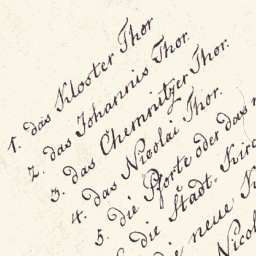 1. das Kloster Thor
2. das Johannis Thor.
3. das Chemnitzer Thor.
4. das Nicolai Thor.
5. die Pforte oder das
die Stadt. Kirc
die neue K
Nicol